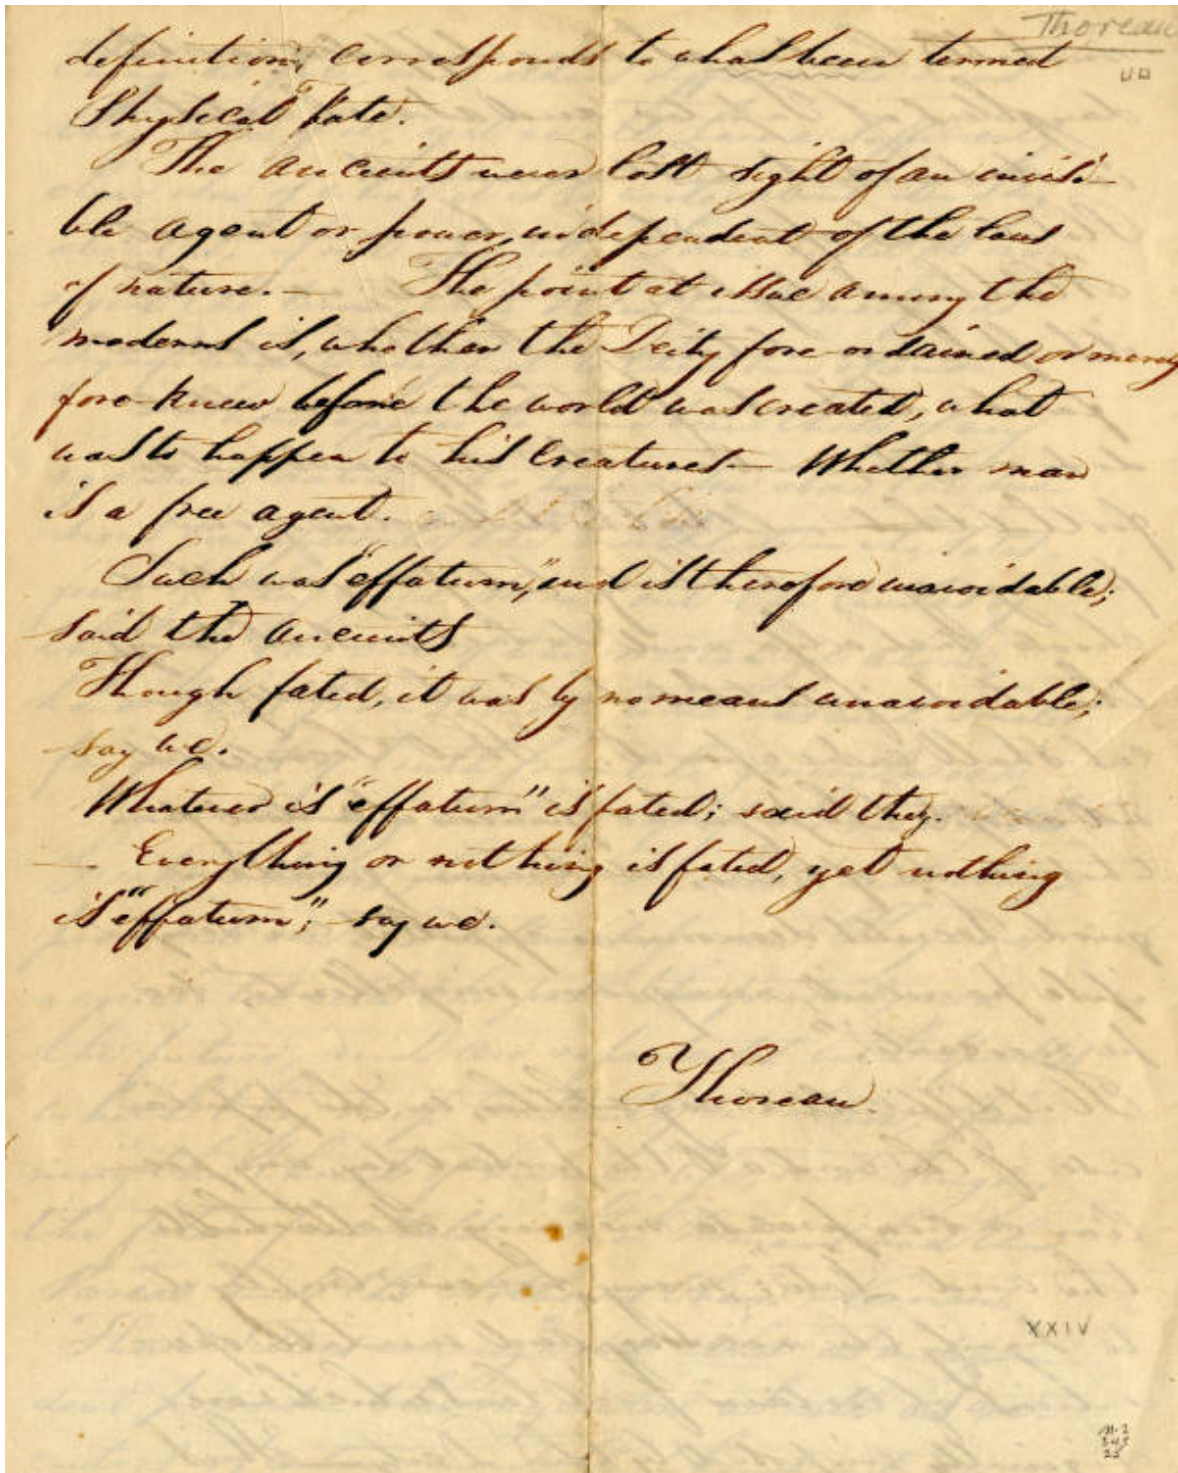 Thoreau
definition, corresponds to what has been termed
Physical Fate.
The ancients never lost sight of an invisi-
ble agent or power, independent of the laws
of nature. — The point at issue among the
moderns is, whether the Deity fore-ordained or merely
fore-knew before the world was created, what
was to happen to his Creatures — Whether man
is a free agent.
Such was "effatum," and is therefore unavoidable;
said the ancients
Though fated, it was by no means unavoidable;
say we.
Whatever is "effatum" is fated; said they.
— Everything or nothing is fated, yet nothing
is "effatum"; say we.
Thoreau.
XXIV